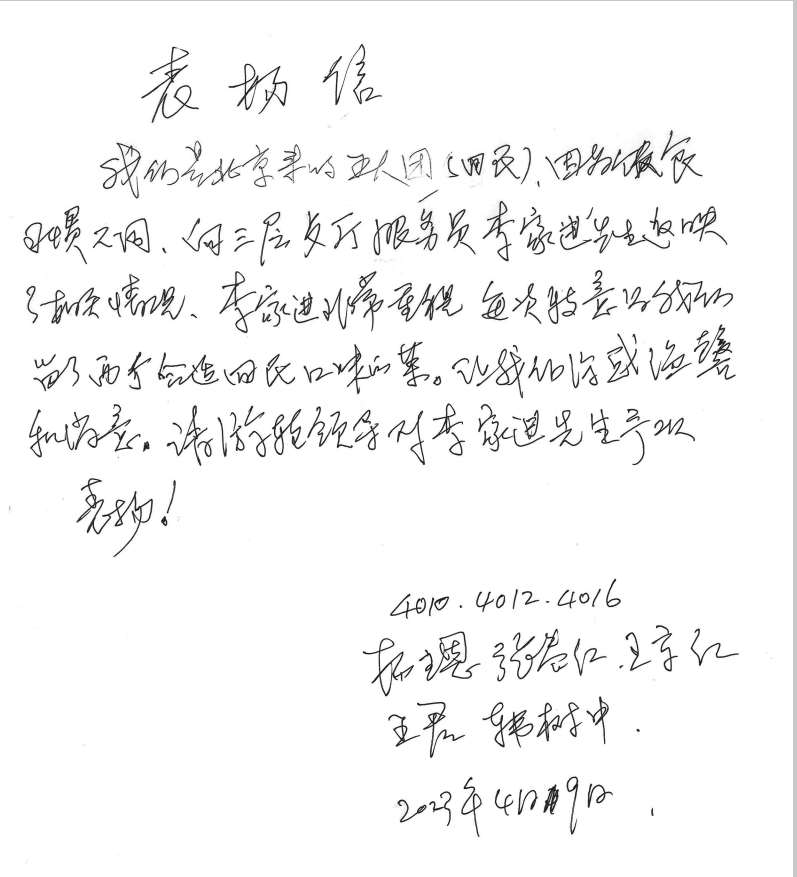 表扬信
我们是北京来的五人团(回民)、因为饭食
习惯不同、向三层餐厅服务员李家迪先生反映
了相关情况、李家迪非常重视 每次特意给我们
留了两个合适回民口味的菜。让我们深感温馨
和满意。请游轮领导对李家迪先生予以
表扬!
4010.4012.4016
张春红.王京红
王君 韩树申.
2023年4月19日.